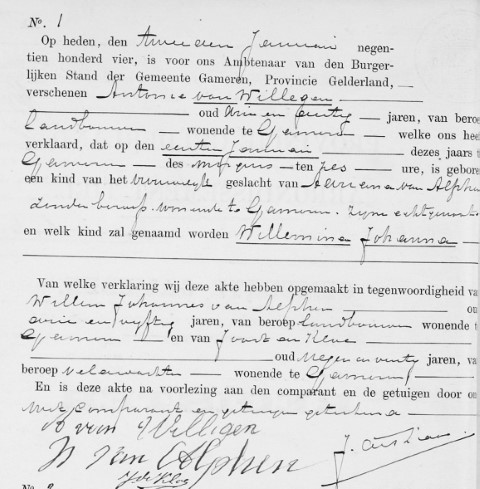 No. 1
Op heden, den tweeden Januari negen-
tien honderd vier, is voor ons Ambtenaar van den Burger-
lijken Stand der Gemeente Gameren, Provincie Gelderland,
verschenen Antonie van Willegen
oud drie en jaren, van beroe
landbouwer wonende te Gameren welke ons hee
verklaard, dat op den eersten Januari dezes jaars t
Gameren des morgens ten zes ure, is gebore
een kind van het vrouwelijk geslacht van Adriana van Alphen
zonder beroep wonende te Gameren, zijne echtgenoote
en welk kind zal genaamd worden Willemina Johanna
Van welke verklaring wij deze akte hebben opgemaakt in tegenwoordigheid va
Willem Johannes van Alphen ou
drie en vijftig jaren, van beroep landbouwer wonende t
Gameren en van Joost de Klug
oud negen en jaren, va
beroep veldwachter wonende te Gameren
En is deze akte na voorlezing aan den comparant en de getuigen door on
met comparant en getuigen geteekend
A van Willigen
W van Alphen
J. de
No.